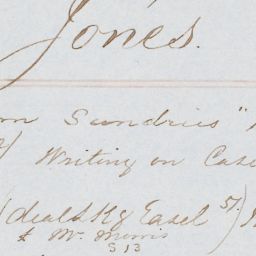 Jones.
Sundries "
Writing on Case
(deal & Kg Easel 5/.)
& Mr. Morris
S 13